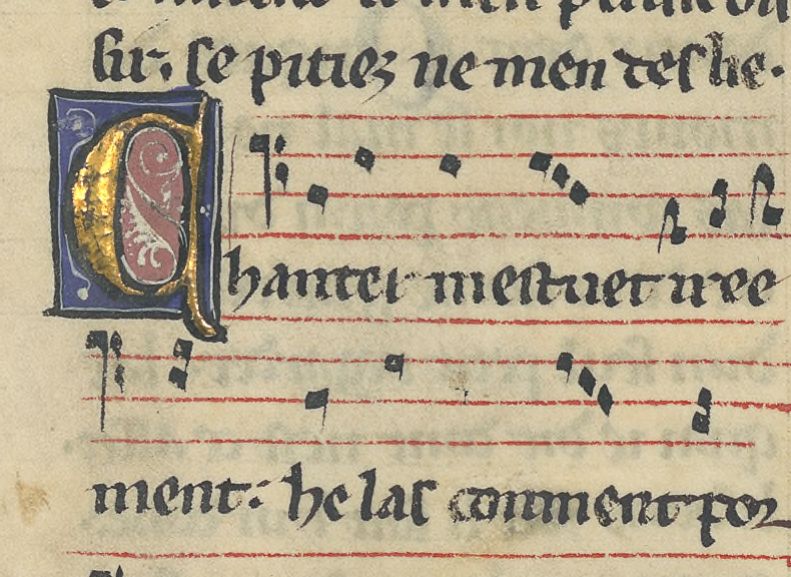 sir, se pitiez ne men deslie.
Chanter mestuet iree
ment: he las conment por